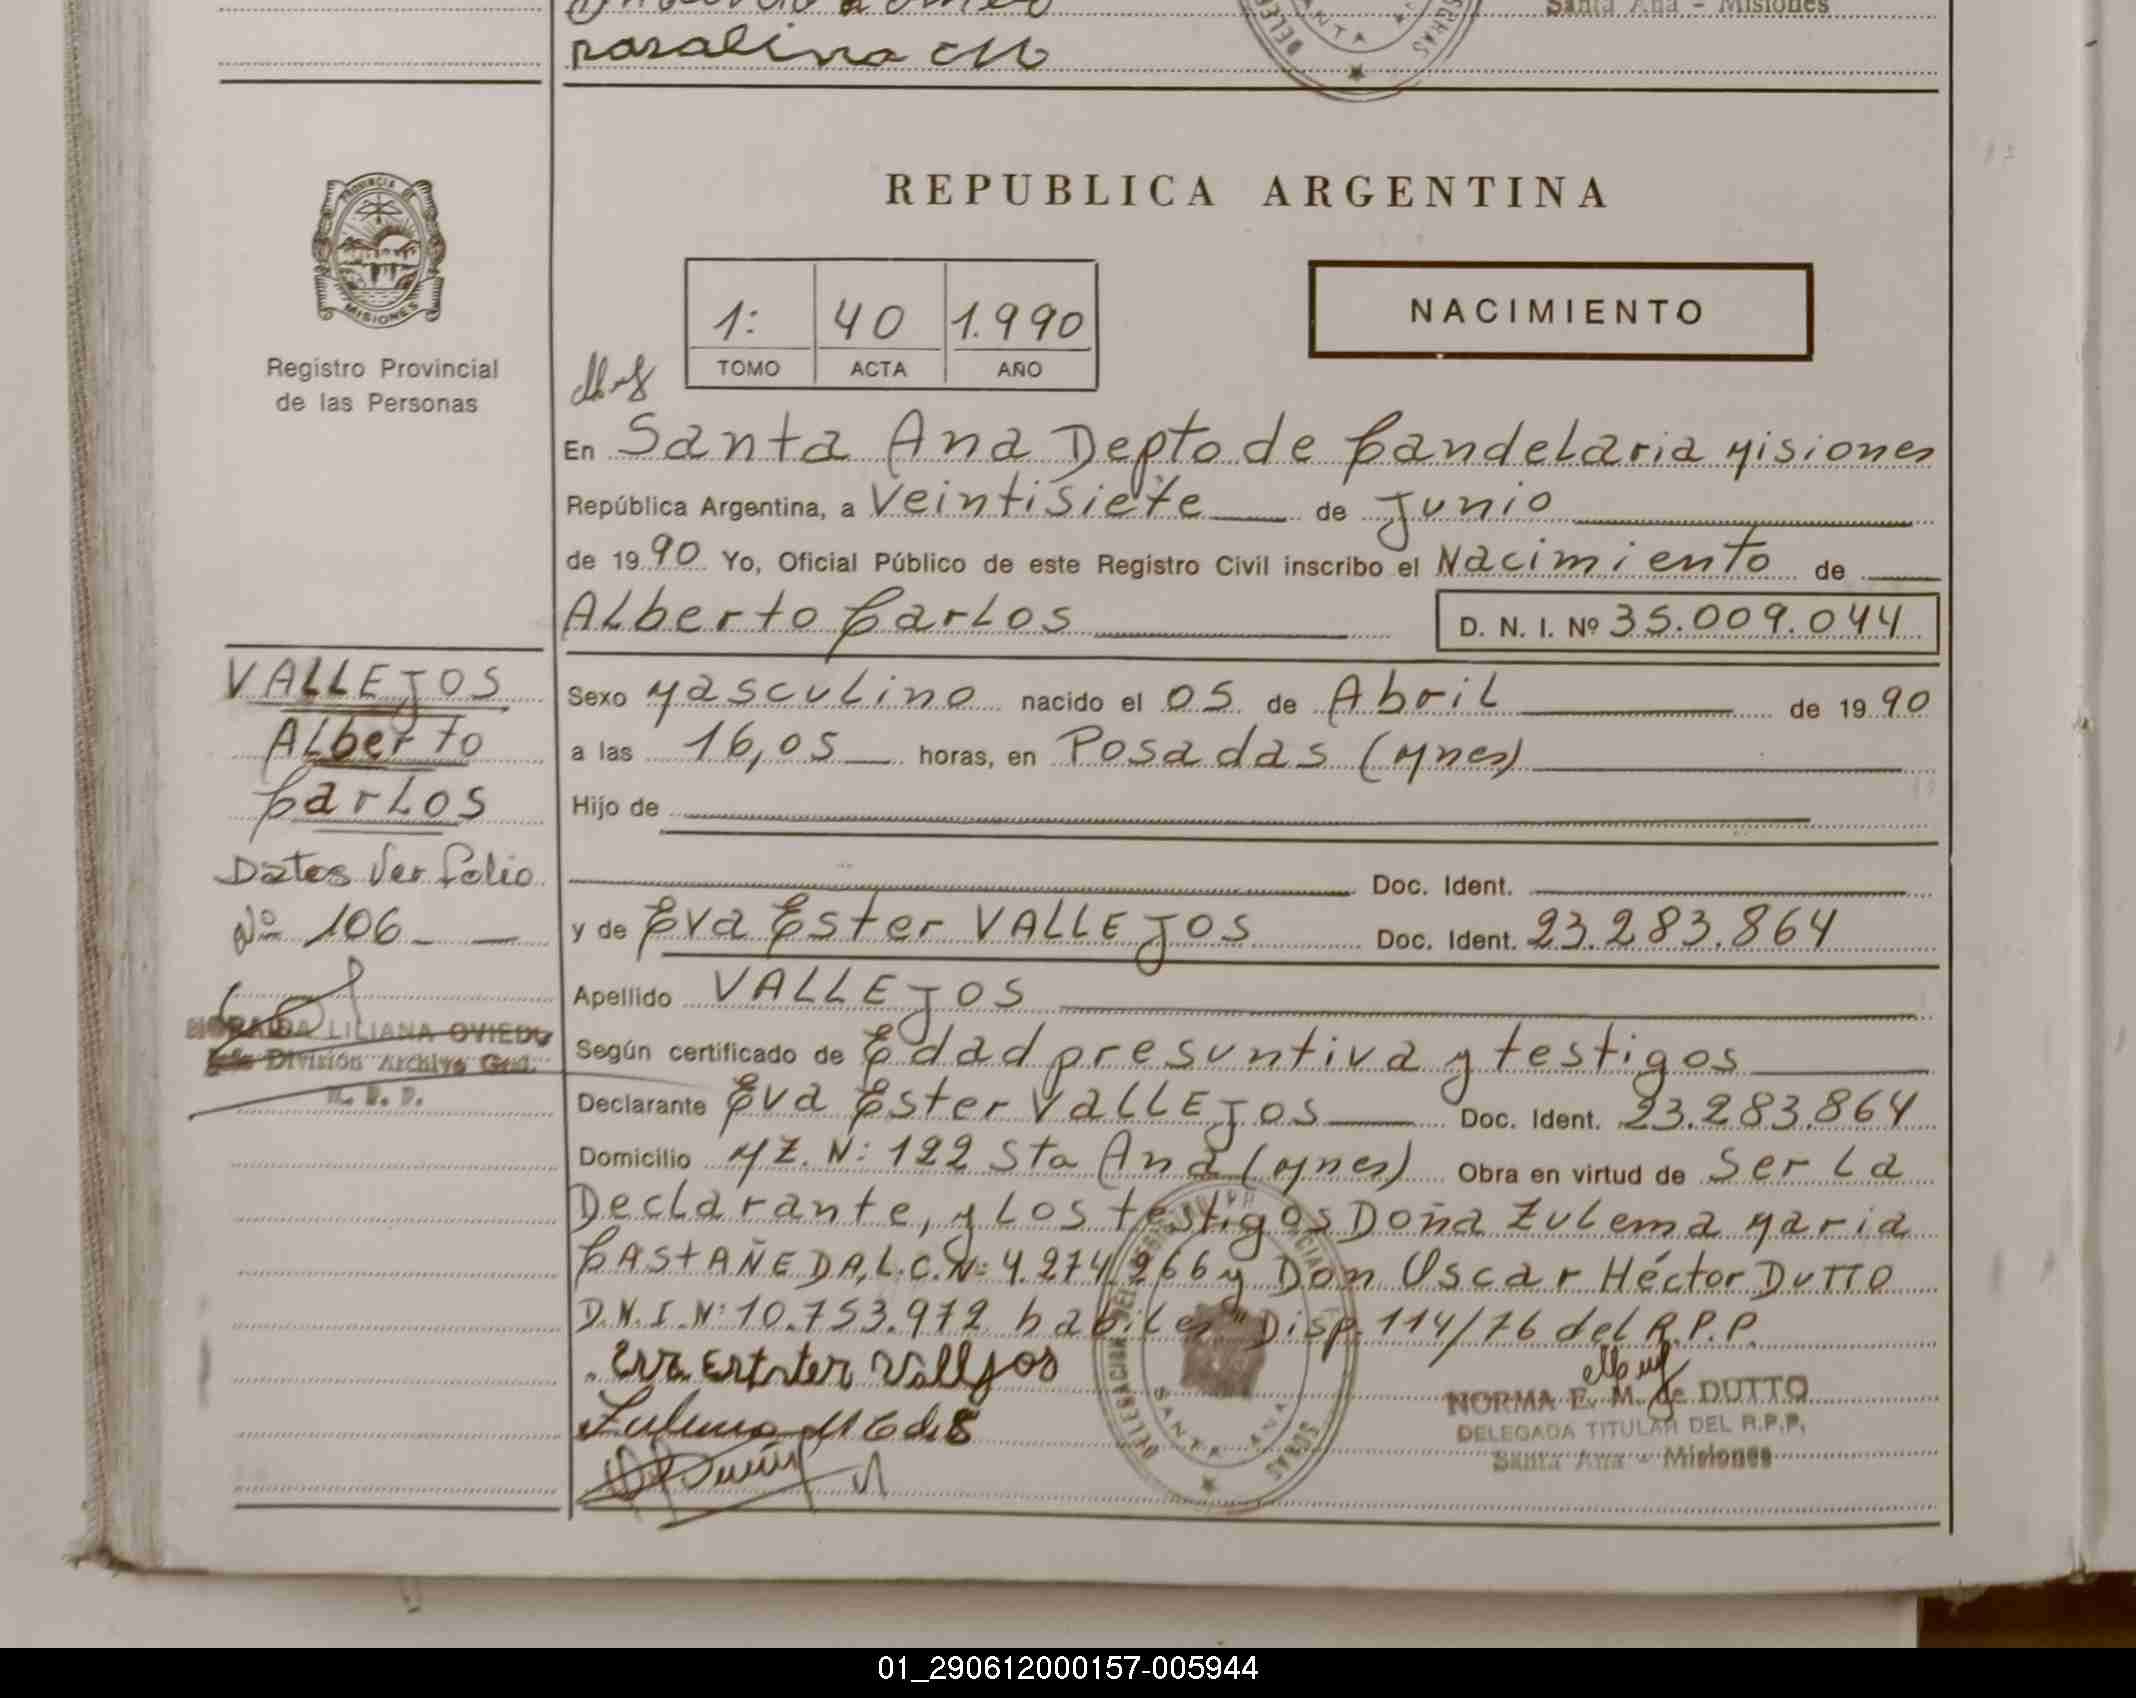 rosalina M
Santa Ana - Misiones
PROVINCIA DE
MISIONES
Registro Provincial
de las Personas
REPUBLICA ARGENTINA
1: 40 1.990
TOMO ACTA AÑO
NACIMIENTO
En Santa Ana Depto de Candelaria Misiones
República Argentina, a Veintisiete de Junio
de 1990 Yo, Oficial Público de este Registro Civil inscribo el Nacimiento de
Alberto Carlos D. N. I. Nº 35.009.044
VALLEJOS
Alberto
Carlos
Datos Ver folio
Nº 106
NORAIDA LILIANA OVIEDO
División Archivo Gral.
R. P. P.
Sexo Masculino nacido el 05 de Abril de 1990
a las 16,05 horas, en Posadas (Mnes)
Hijo de
Doc. Ident.
y de Eva Ester VALLEJOS Doc. Ident. 23.283.864
Apellido VALLEJOS
Según certificado de Edad presuntiva y testigos
Declarante Eva Ester VALLEJOS Doc. Ident. 23.283.864
Domicilio MZ. N: 122 Sta Ana (Mnes) Obra en virtud de Ser La
Declarante, y Los testigos Doña Zulema Maria
CASTAÑEDA, L.C.N: 4.274.266 y Don Oscar Héctor DUTTO
D.N.I.N: 10.753.972 habiles" Disp. 114/76 del R.P.P.
Eva Estster Valljos
NORMA E. M. de DUTTO
DELEGADA TITULAR DEL R.P.P.
Santa Ana - Misiones
SANTA ANA
01_290612000157-005944